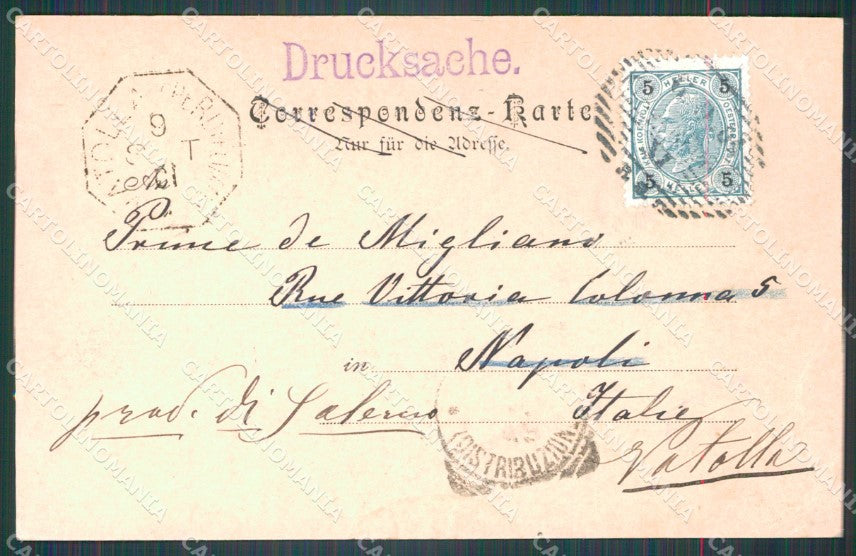 Drucksache.
Correspondenz-Karte
Nur für die Adresse.
5 HELLER 5
5 HELLER 5
9
T
Prince de Migliano
Rue Vittoria Colonna 5
in Napoli
prov. di Salerno Italie
DISTRIBUZIONE
Vatolla
CARTOLINOMANIA